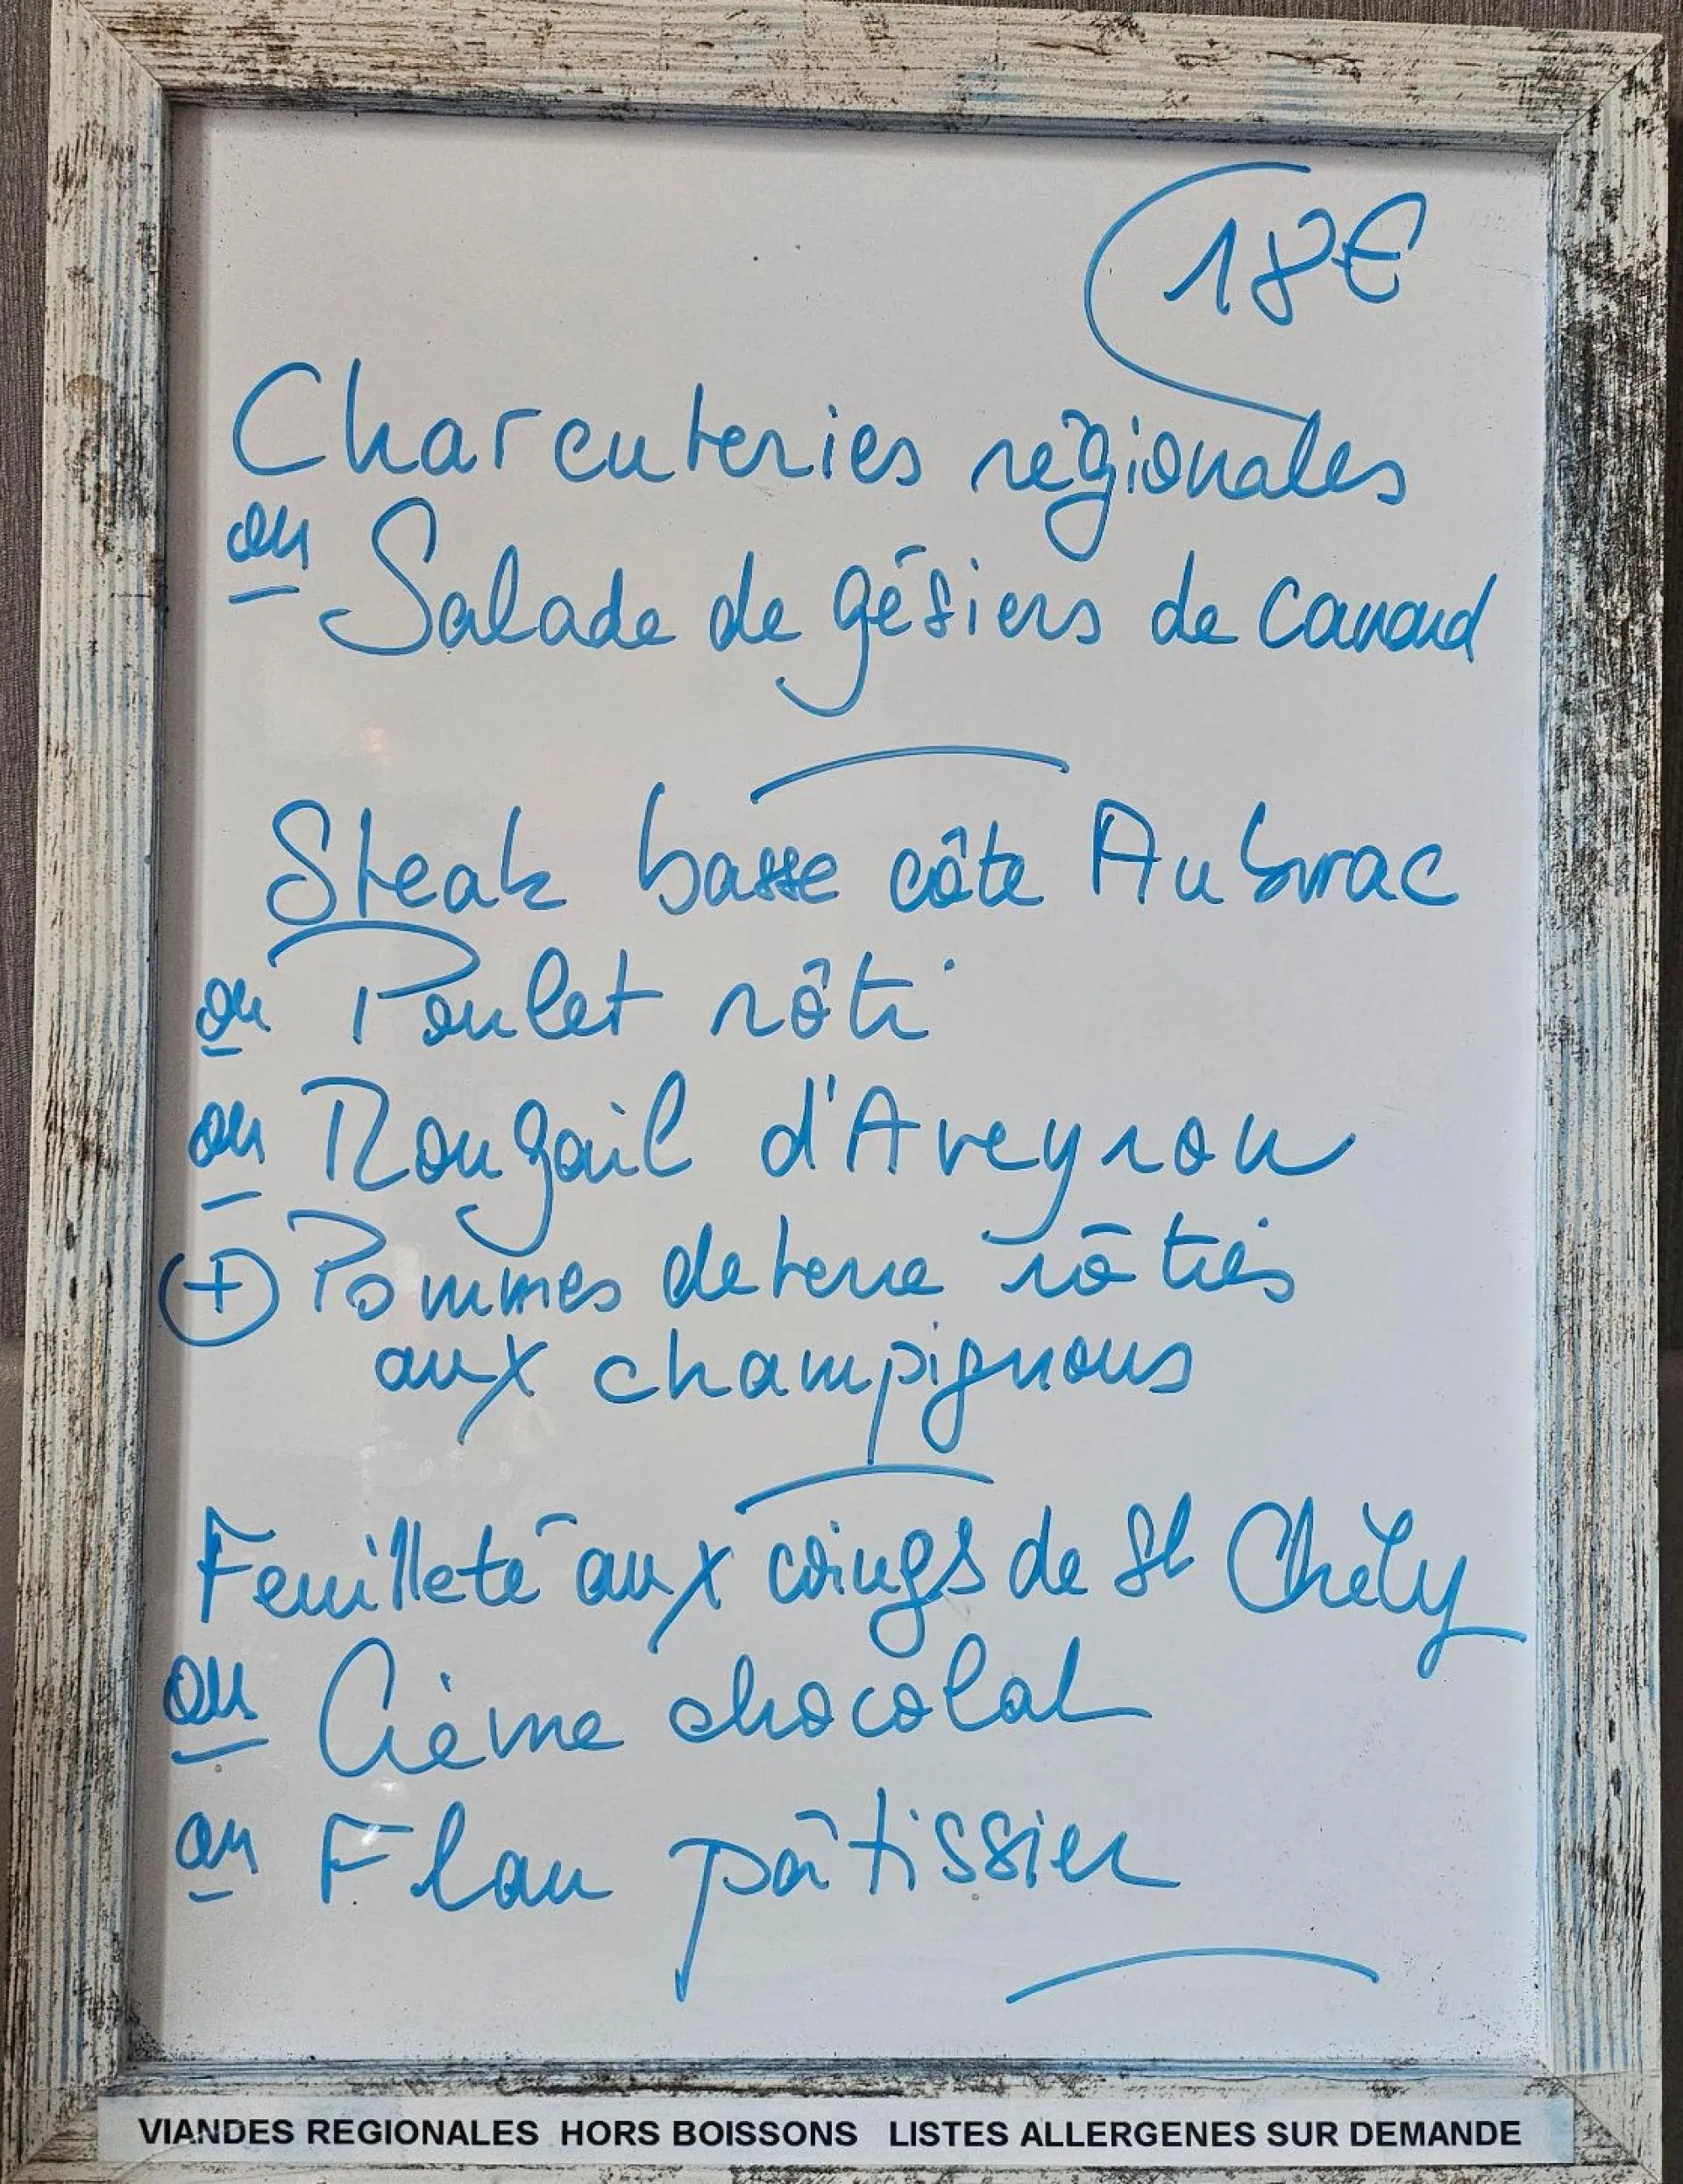 18€
Charcuteries régionales
ou Salade de gésiers de canard
Steak basse côte Aubrac
ou Poulet rôti
ou Rougail d'Aveyron
+ Pommes de terre rôties
aux champignons
Feuilleté aux coings de St Chély
ou Crème chocolat
ou Flan pâtissier
VIANDES REGIONALES HORS BOISSONS LISTES ALLERGENES SUR DEMANDE